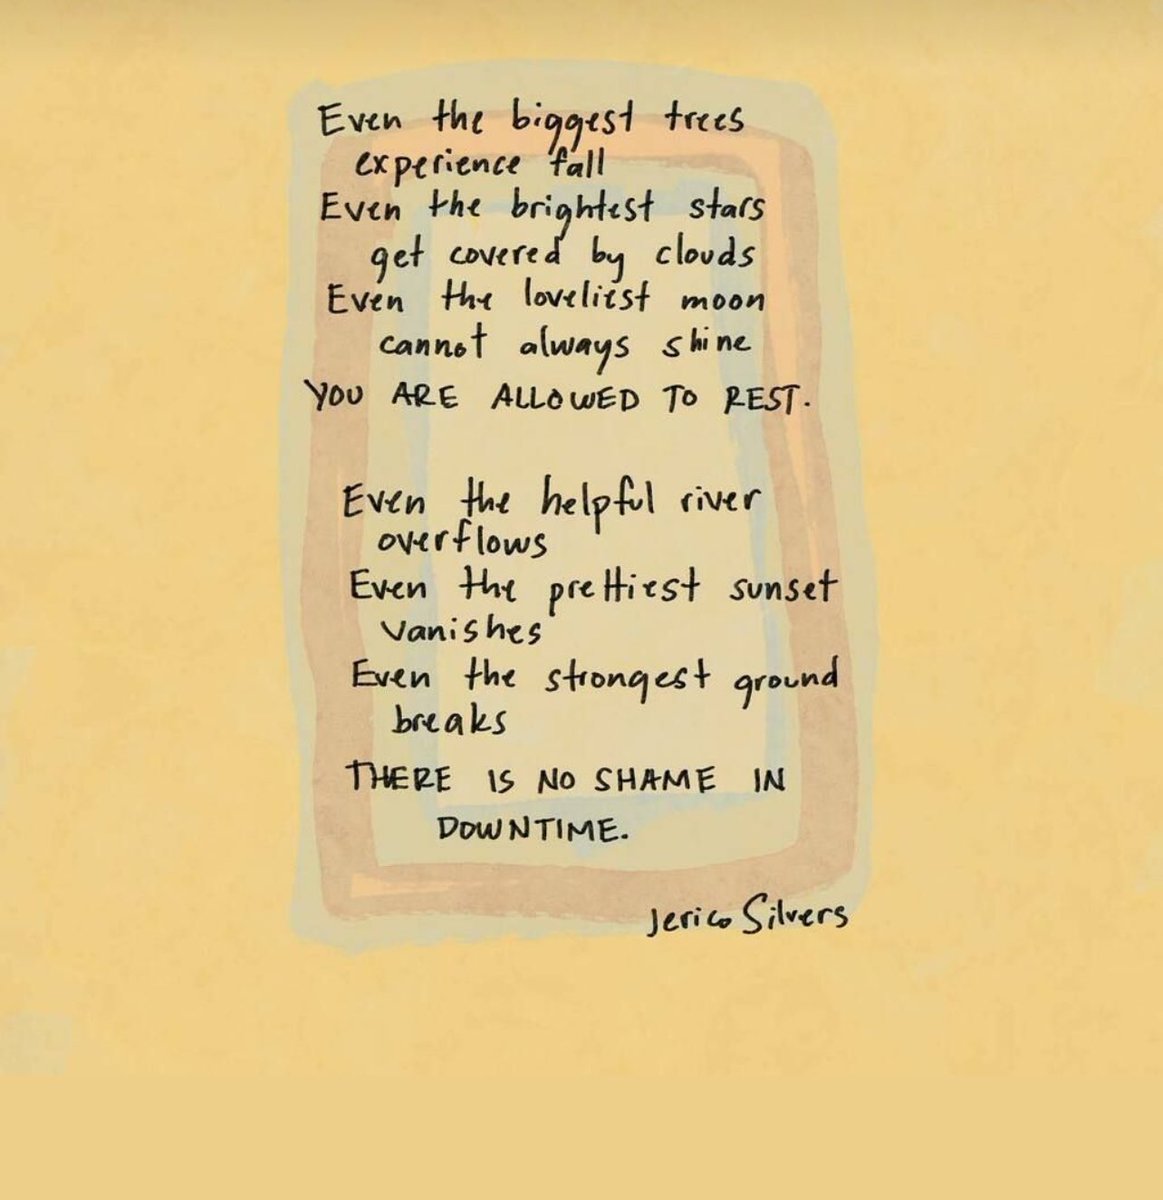 Even the biggest trees
experience fall
Even the brightest stars
get covered by clouds
Even the loveliest moon
cannot always shine
YOU ARE ALLOWED TO REST.
Even the helpful river
overflows
Even the prettiest sunset
vanishes
Even the strongest ground
breaks
THERE IS NO SHAME IN
DOWNTIME.
Jerico Silvers